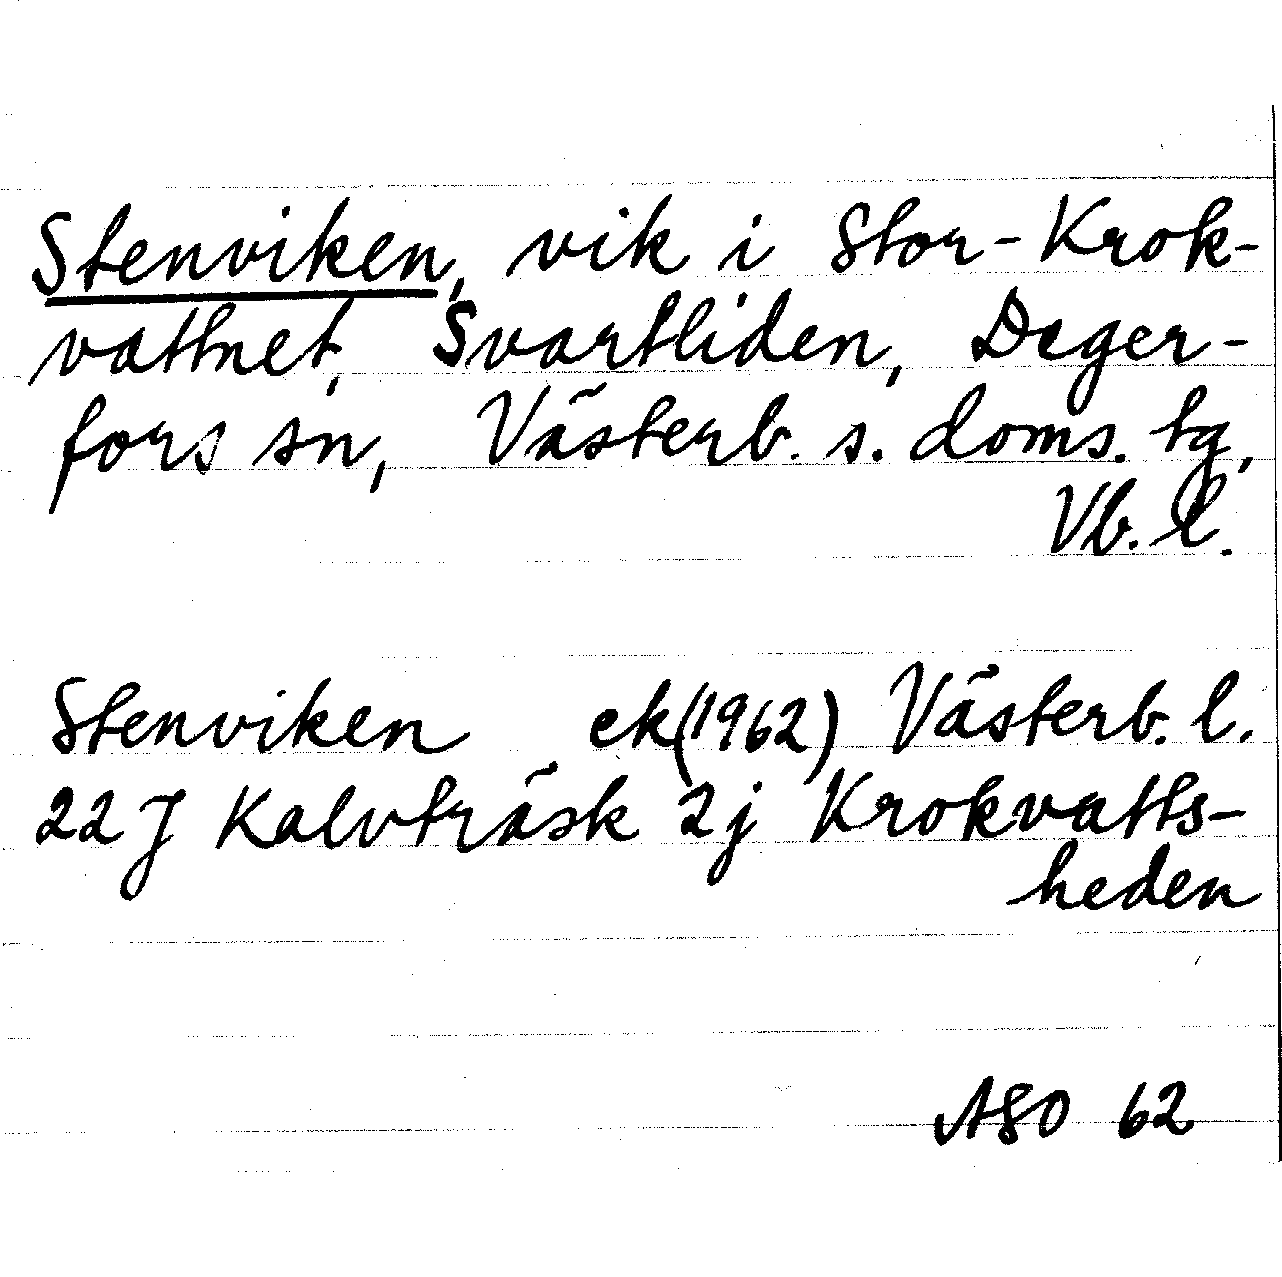 Stenviken, vik i Stor-Krok-
vattnet, Svartliden, Deger-
fors sn, Västerb. s. doms. tg,
Vb. l.
Stenviken ek(1962) Västerb. l.
22 J Kalvträsk 2j Krokvatts-
heden
ASO 62